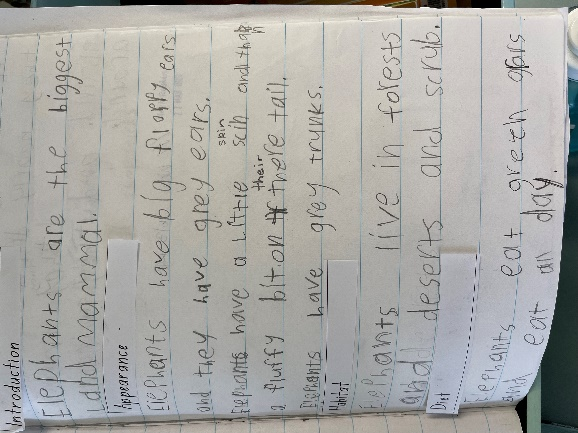 Introduction
Elephants are the biggest
Land mammal.
Appearance
Elephants have big floppy ears
and they have grey ears.
skin
Elephants have a little scin and
their
a fluffy bit on there tail.
Elephants have grey trunks.
Habitat
Elephants live in forests
and deserts and scrub.
Diet
Elephants eat green
and eat all day.